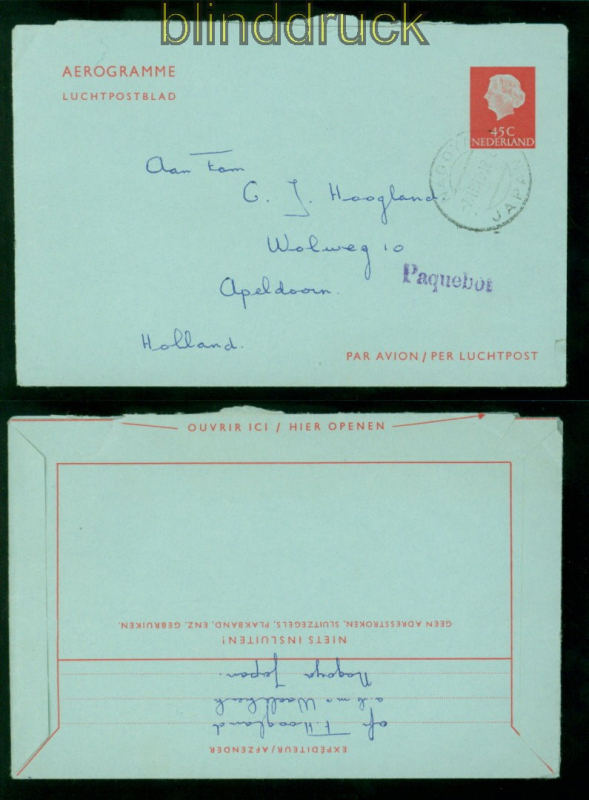 blinddruck
AEROGRAMME
LUCHTPOSTBLAD
45C
NEDERLAND
NAGOYA
JAPAN
Aan Fam
G. J. Hoogland
Wolweg 10
Apeldoorn.
Holland.
Paquebot
PAR AVION / PER LUCHTPOST
OUVRIR ICI / HIER OPENEN
EXPÉDITEUR/AFZENDER
F. Hoogland
a.b. ms
Nagoya Japan.
NIETS INSLUITEN!
GEEN ADRESSTROKEN, SLUITZEGELS, PLAKBAND, ENZ. GEBRUIKEN.